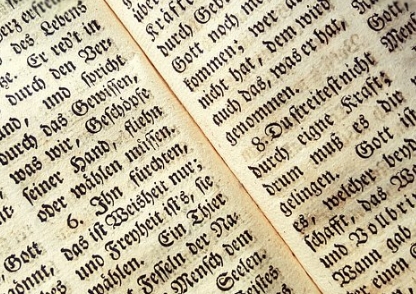 des Lebens
ge. Er red't in
durch den Ver-
und spricht
durch das Gewissen,
was wir, Geschöpfe
seiner Hand, fliehn
oder wählen müssen.
6. Ihn fürchten,
das ist Weisheit nur:
und Freyheit ists, sie
wählen. Ein Thier
Gott
Fesseln der Na-
Mensch dem
Seelen.
durch Geb
Gott noch me
kommen; wer a
nicht hat, dem wird
auch das, was er hat,
genommen.
8. Du streitest nicht
durch eigne Kraft;
drum muß es die
gelingen. Gott
es, welcher beyd
schafft, das W
und Vollbri
Wann gab
einen